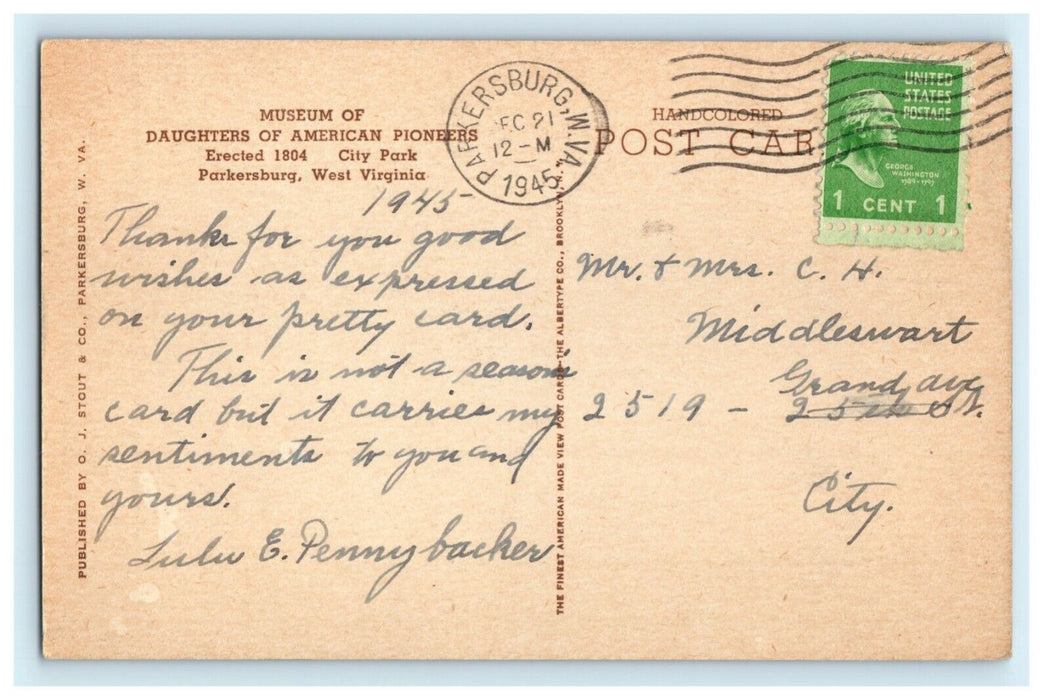 MUSEUM OF
DAUGHTERS OF AMERICAN PIONEERS
Erected 1804 City Park
Parkersburg, West Virginia
1945
Thanks for you good
wishes as expressed
on your pretty card.
This is not a season's
card but it carries my
sentiments to you and
yours.
Lulu E. Pennybacker
PUBLISHED BY O. J. STOUT & CO., PARKERSBURG, W. VA.
THE FINEST AMERICAN MADE VIEW POST CARDS—THE ALBERTYPE CO., BROOKLYN,
PARKERSBURG, W.VA.
EC 21
12-M
1945
HANDCOLORED
POST CAR
UNITED
STATES
POSTAGE
GEORGE
WASHINGTON
1789-1797
1 CENT 1
Mr. & Mrs. C. H.
Middleswart
Grand Ave.
2519 - 25th St.
City.